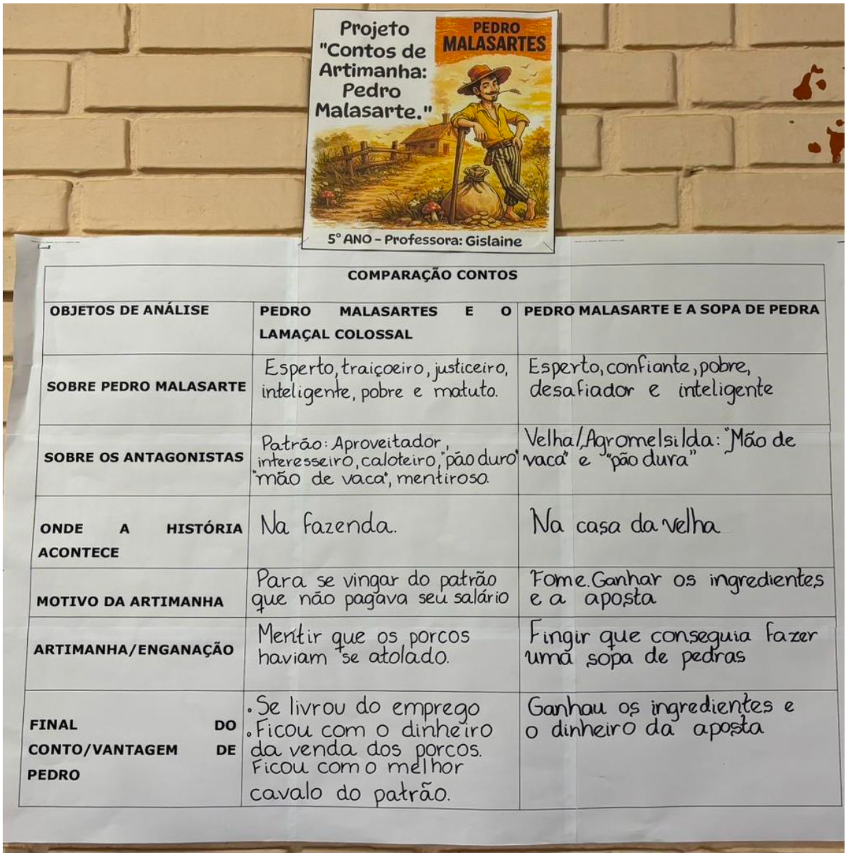 Projeto
"Contos de
Artimanha:
Pedro
Malasarte."
PEDRO
MALASARTES
5° ANO - Professora: Gislaine
COMPARAÇÃO CONTOS
OBJETOS DE ANÁLISE
PEDRO MALASARTES E O
LAMAÇAL COLOSSAL
PEDRO MALASARTE E A SOPA DE PEDRA
SOBRE PEDRO MALASARTE
Esperto, traiçoeiro, justiceiro,
inteligente, pobre e matuto.
Esperto, confiante, pobre,
desafiador e inteligente
SOBRE OS ANTAGONISTAS
Patrão: Aproveitador,
interesseiro, caloteiro, "pão duro"
"mão de vaca", mentiroso.
Velha/Agromelsilda: "Mão de
vaca" e "pão dura"
ONDE A HISTÓRIA
ACONTECE
Na fazenda.
Na casa da velha
MOTIVO DA ARTIMANHA
Para se vingar do patrão
que não pagava seu salário
Fome. Ganhar os ingredientes
e a aposta
ARTIMANHA/ENGANAÇÃO
Mentir que os porcos
haviam se atolado.
Fingir que conseguia fazer
uma sopa de pedras
FINAL DO
CONTO/VANTAGEM DE
PEDRO
. Se livrou do emprego
. Ficou com o dinheiro
da venda dos porcos.
Ficou com o melhor
cavalo do patrão.
Ganhau os ingredientes e
o dinheiro da aposta